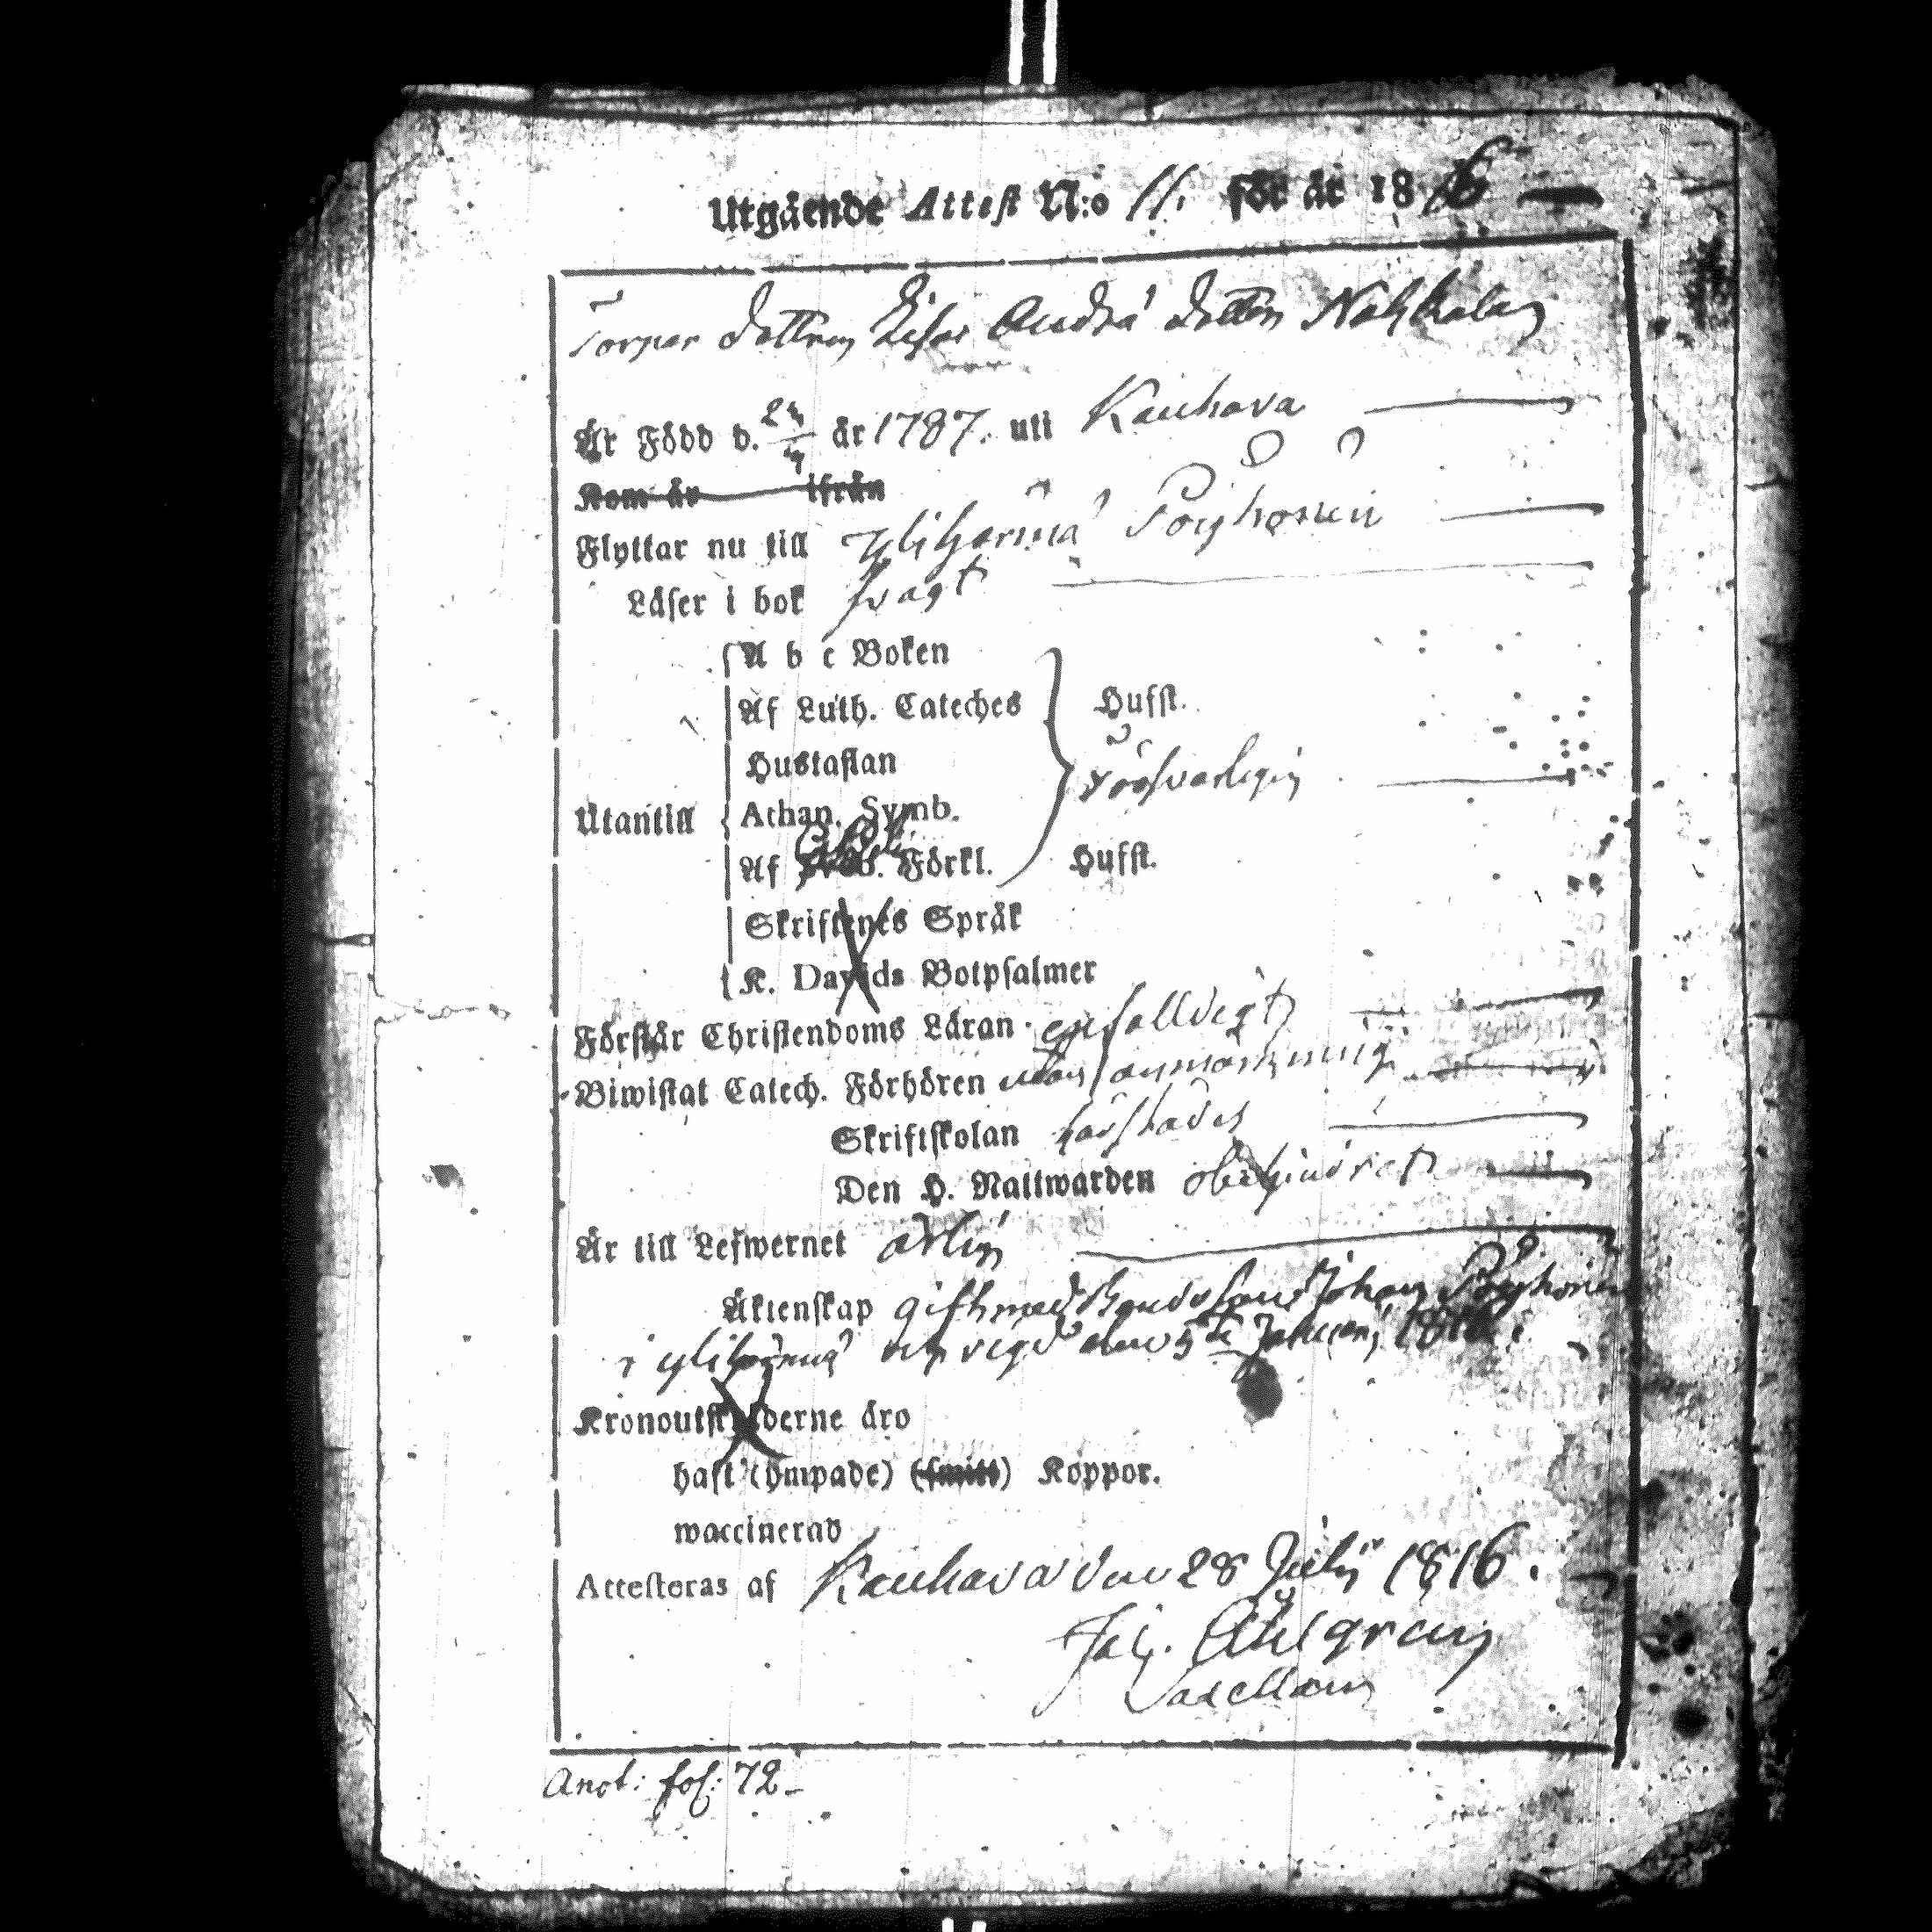 Utgående Attest N:o 11. för år 1816
Torpar dottren Lisa Andrä dotter
Är Född d. år 1787. uti Kauhava
Kom år ifrån
Flyttar nu till Ylihärmä
Läser i bok svagt
A b c Boken
Af Luth. Cateches Hufst.
Hustaflan
Utantill Athan. Symb. försvarligen
Af Förkl. Hufst.
Skriftenes Språk
K. Davids Botpsalmer
Förstår Christendoms Läran enfalldigt
Biwistat Catech. Förhören utan anmärkning
Skriftskolan
Den H. Nattwarden obehindrat
Är till Lefwernet ärlig
Äktenskap gift med Bondesonen Johan
i Ylihärmä och vigd den 5te Januari 1816.
Kronoutskylderne äro
haft (ympade) (smitt) Koppor.
waccinerad
Attesteras af Kauhava den 28 Julii 1816.
Joh. Ahlgren
Sacellan
Anot: fol: 72